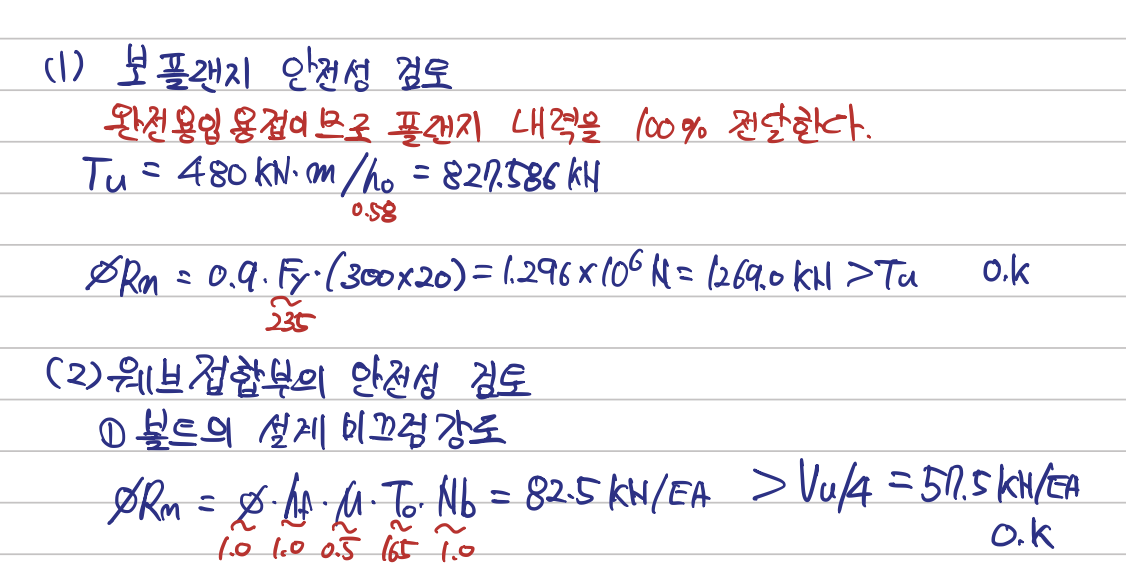 (1) 보 플랜지 안전성 검토
완전용입 용접이므로 플랜지 내력을 100% 전달한다.
Tu = 480 kN·m/h₀ = 827.586 kN
0.58
øRn = 0.9·Fy·(300×20) = 1.296×10⁶ N = 1269.0 kN > Tu O.K
235
(2) 웨브 접합부의 안전성 검토
① 볼트의 설계 미끄럼강도
øRn = ø·hf·μ·T₀·Nb = 82.5 kN/EA > Vu/4 = 57.5 kN/EA
1.0 1.0 0.5 165 1.0
O.K